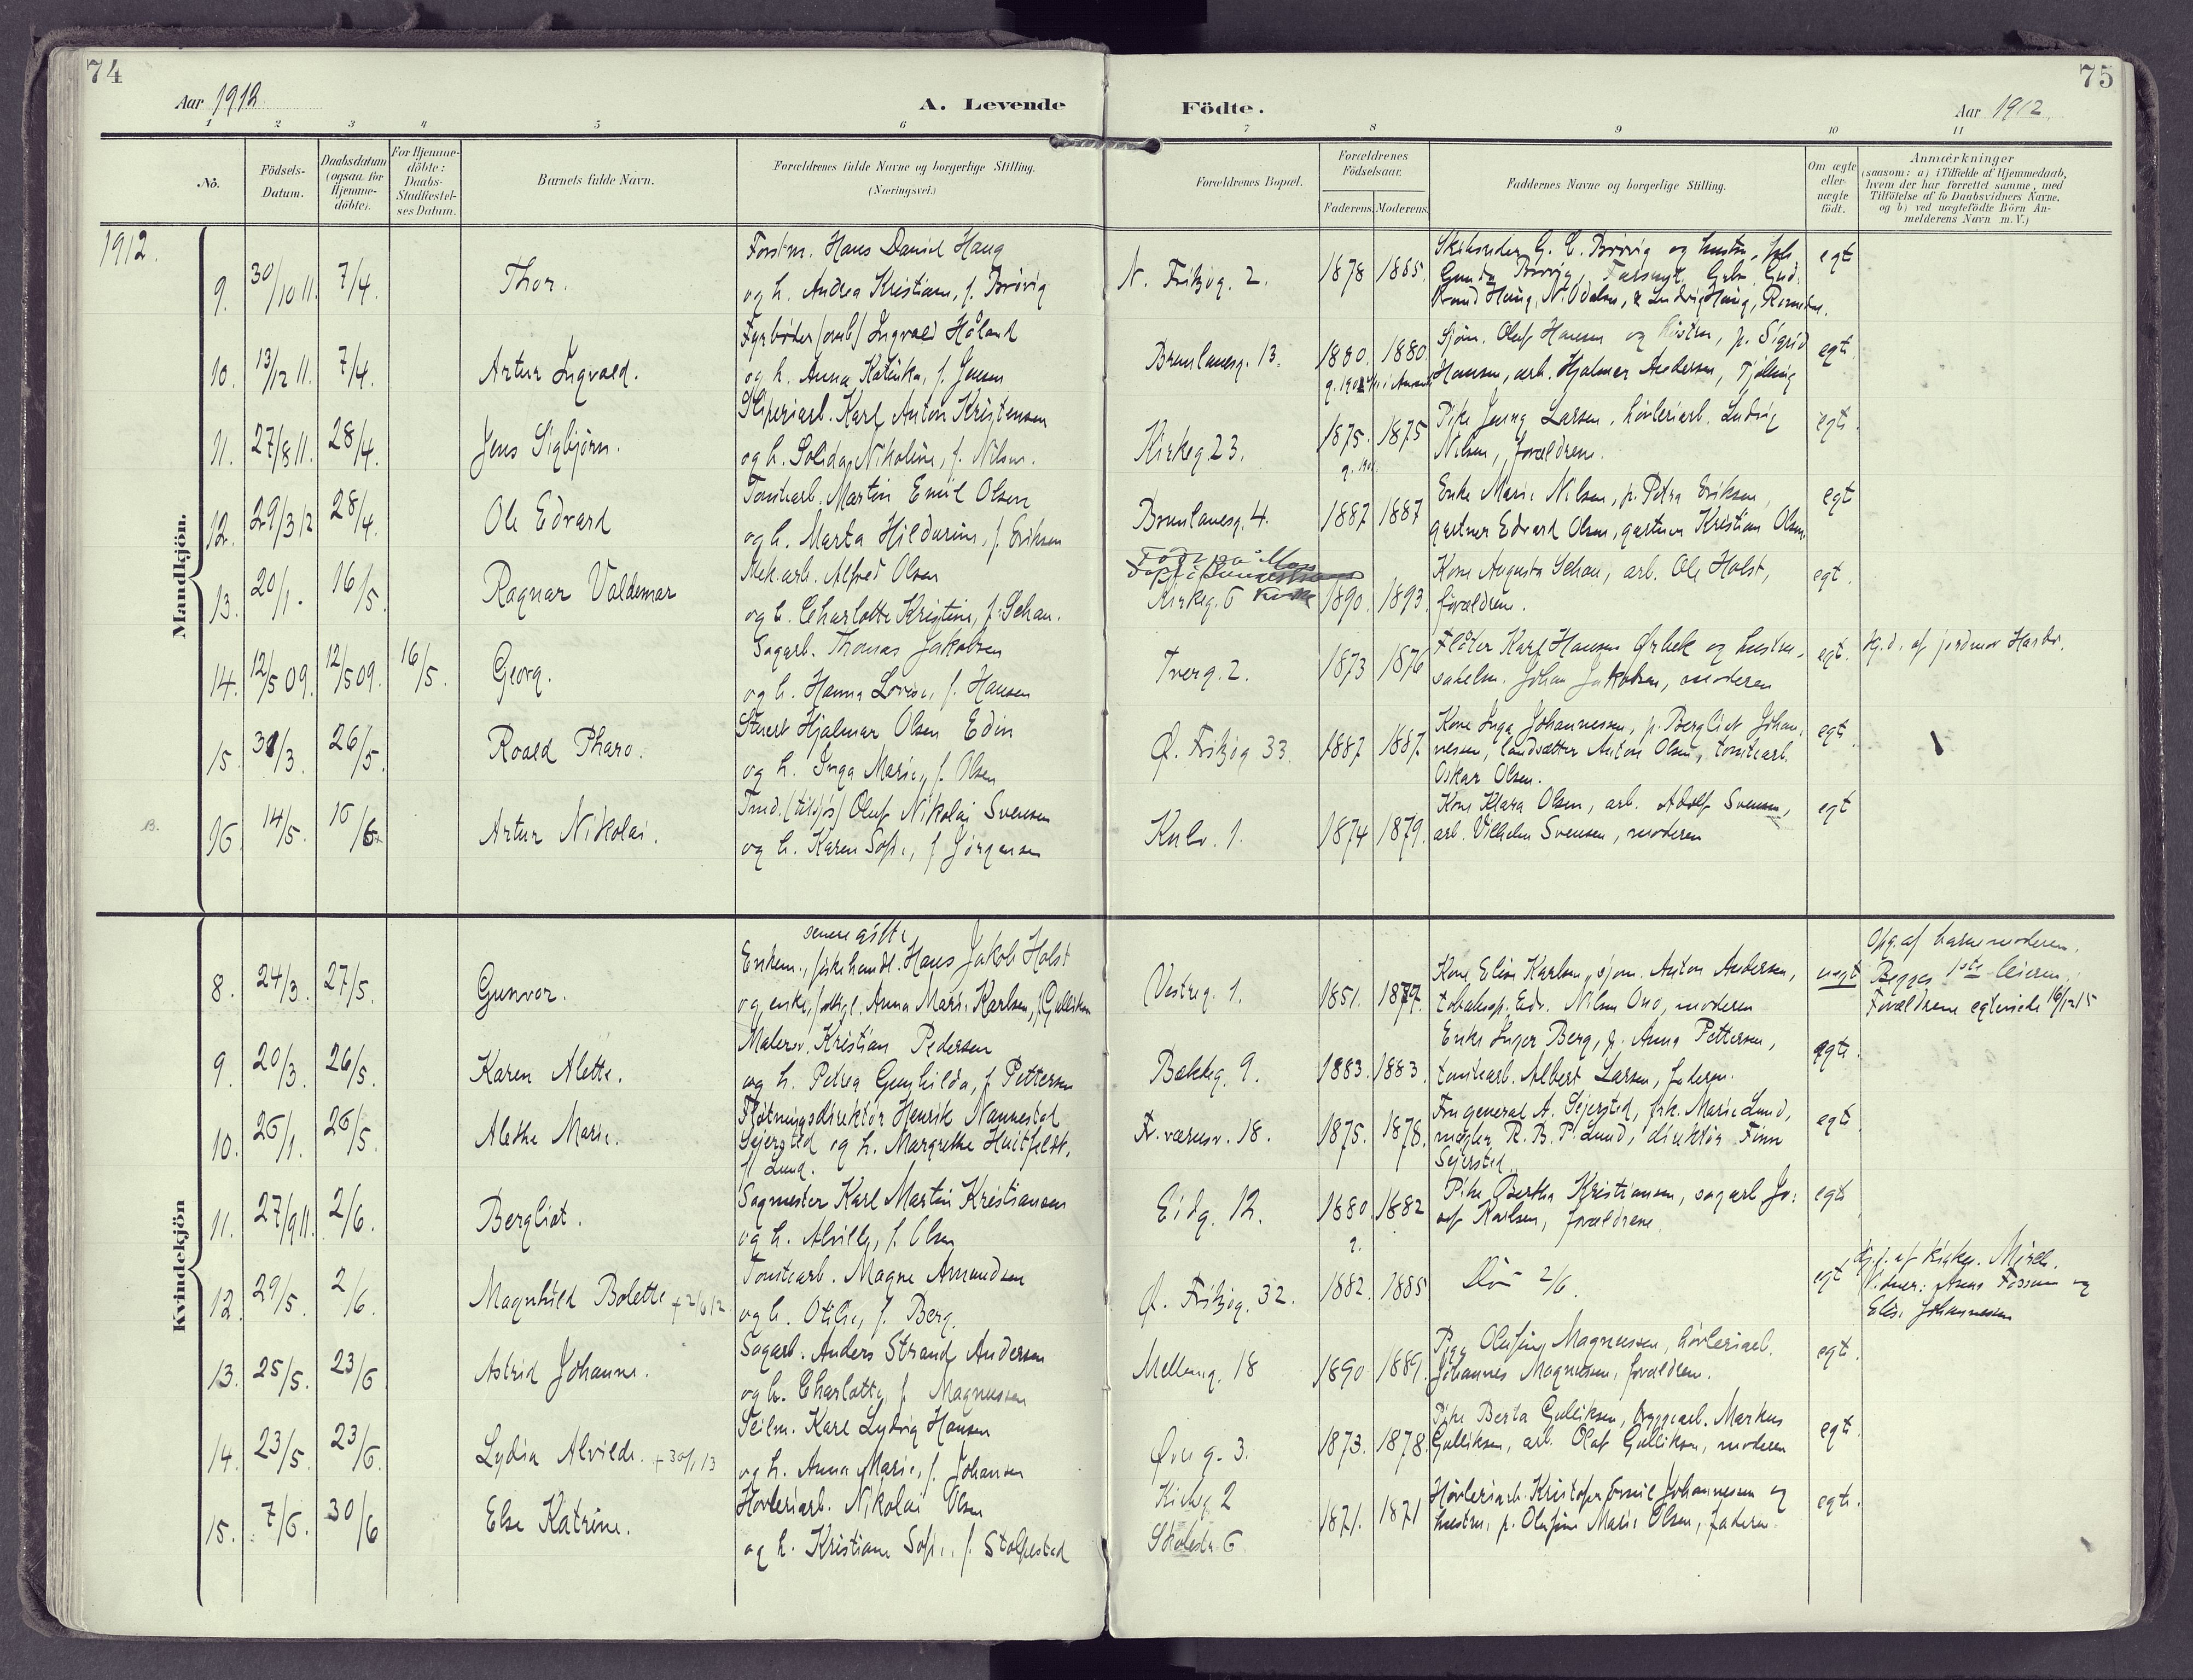 74
Aar 1912
A. Levende
Födte.
Aar 1912.
75
1 2 3 4 5 6 7 8 9 10 11
No.
Födsels-
Datum.
Daabsdatum
(ogsaa for
Hjemme-
döbte).
For Hjemme-
döbte:
Daabs-
Stadfæstel-
ses Datum.
Barnets fulde Navn.
Forældrenes fulde Navne og borgerlige Stilling.
(Næringsvei.)
Forældrenes Bopæl.
Forældrenes
Födselsaar.
Faderens. Moderens.
Faddernes Navne og borgerlige Stilling.
Om ægte
eller
uægte
födt.
Anmærkninger
(saasom: a) i Tilfælde af Hjemmedaab,
hvem der har forrettet samme, med
Tilföielse af to Daabsvidners Navne,
og b) ved uægtefödte Börn An-
melderens Navn m. V.)
1912.
Mandkjön.
9. 30/10 11. 7/4. Thor.
Forstm. Hans Daniel Haug
og h. Andrea Kristiane, f. Brövig
N. Fritzög. 2. 1878 1885.
G. C. Brövig og hustru,
Gunda Brövig,
Haug, N. Odalen, Ludvig Haug, Romedal.
egt
10. 13/12 11. 7/4. Artur Ingvald.
Fyrböder (omb) Ingvald Höland
og h. Anna Katinka, f. Jensen
Brunlanesg. 13. 1880. 1880.
Sjöm. Oluf Hansen og hustru, p. Sigrid
Hansen, arb. Hjalmar Andersen, Tjölling
egte.
11. 27/8 11. 28/4. Jens Sigbjörn.
Sliperiarb. Karl Anton Kristensen
og h. Solida Nikoline, f. Nilsen.
Kirkeg. 23. 1875. 1875
Pike Jenny Larsen, hövleriarb. Ludvig
Nilsen, forældrene.
egte.
12. 29/3 12 28/4. Ole Edvard
Tomtearb. Martin Emil Olsen
og h. Marta Hildurine, f. Eriksen
Brunlanesg. 4. 1887 1887
Enke Marie Nilsen, p. Petra Eriksen,
gartner Edvard Olsen, gartner Kristian Olsen.
egt
13. 20/1. 16/5. Ragnar Valdemar
Mek. arb. Alfred Olsen
og h. Charlotte Kristine, f. Schau.
Kirkeg. 6 1890. 1893.
Kone Augusta Schau, arb. Ole Holst,
forældrene.
egt.
14. 12/5 09. 12/5 09. 16/5. Georg.
Sagarb. Thomas Jakobsen
og h. Hanna Lovise, f. Hansen
Tverg. 2. 1873 1876
Flöter Karl Hansen Örbek og hustru,
Johan Jakobsen, moderen
egt.
Hj.d. af jordmor
15. 31/3. 26/5. Roald Pharo.
Stuert Hjalmar Olsen Edin
og h. Inga Marie, f. Olsen
Ö. Fritzög 33. 1887 1887.
Kone Inga Johannessen, p. Bergliot Johan-
nessen, landsætter Anton Olsen, tomtearb.
Oskar Olsen.
egte.
13.
16. 14/5. 16/6. Artur Nikolai.
Tmd. (tilsjös) Oluf Nikolai Svensen
og h. Karen Sofie, f. Jörgensen
Kulv. 1. 1874 1879.
Kone Klara Olsen, arb. Adolf Svensen,
arb. Vilhelm Svensen, moderen
egt
Kvindekjön
8. 24/3. 27/5. Gunvor.
senere gifte
Enkem., fiskehandl. Hans Jakob Holst
og enke, Anna Marie Karlsen, f. Gulliksen
Vestreg. 1. 1851. 1877.
Kone Elise Karlsen, sjöm. Anton Andersen,
Edv. Nilsen Ono, moderen
uegt
Opg. af barnemoderen.
Begges 1ste leierm.
Forældrene egteviede 16/12 15
9. 20/3. 26/5. Karen Alette.
Malersv. Kristian Pedersen
og h. Petrea Gunhilda, f. Pettersen
Bakkeg. 9. 1883. 1883.
Enke Inger Berg, p. Anna Pettersen,
tomtearb. Albert Larsen, faderen.
egte.
10. 26/1. 26/5. Alethe Marie.
Flötningsdirektör Henrik Nannestad
Sejersted og h. Margrethe Huitfeldt,
f. Lund.
1875. 1878.
Fru general A. Sejersted, frk. Marie Lund,
mægler R. B. P. Lund, direktör Finn
Sejersted.
egte.
11. 27/9 11. 2/6. Bergliot.
Sagmester Karl Martin Kristiansen
og h. Alvilde, f. Olsen
Eidg. 12. 1880. 1882
Pike Bertha Kristiansen, sagarb. Jo-
sef Karlsen, forældrene
egte
12. 29/5. 2/6. Magnhild Bolette + 2/6 12.
Tomtearb. Magne Amundsen
og h. Otilie, f. Berg.
Ö. Fritzög. 32. 1882. 1885
Död 2/6.
egt
Hj.d. af
Vidner: Anna Fossum og
Elise Johannessen
13. 25/5. 23/6. Astrid Johanne.
Sagarb. Anders Strand Andersen
og h. Charlotte, f. Magnussen
Mellemg. 18 1890 1889.
Olufine Magnussen, hövleriarb.
Johannes Magnussen, forældrene.
egte.
14. 23/5. 23/6. Lydia Alvilde. + 30/1 13
Seilm. Karl Ludvig Hansen
og h. Anna Marie, f. Johansen
Övreg. 3. 1873. 1878.
Pike Berta Gulliksen, byggearb. Markus
Gulliksen, arb. Olaf Gulliksen, moderen
egte.
15. 7/6. 30/6 Else Katrine.
Hövleriarb. Nikolai Olsen
og h. Kristiane Sofie, f. Stolpestad
Kirkeg. 2
6 1871. 1871
Hövleriarb. Kristofer Emil Johannessen og
hustru, p. Olufine Marie Olsen, faderen.
egte.